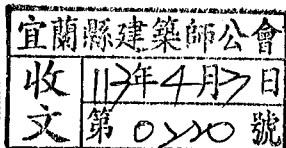 宜蘭縣建築師公會
收文
113年4月2日
第0220號